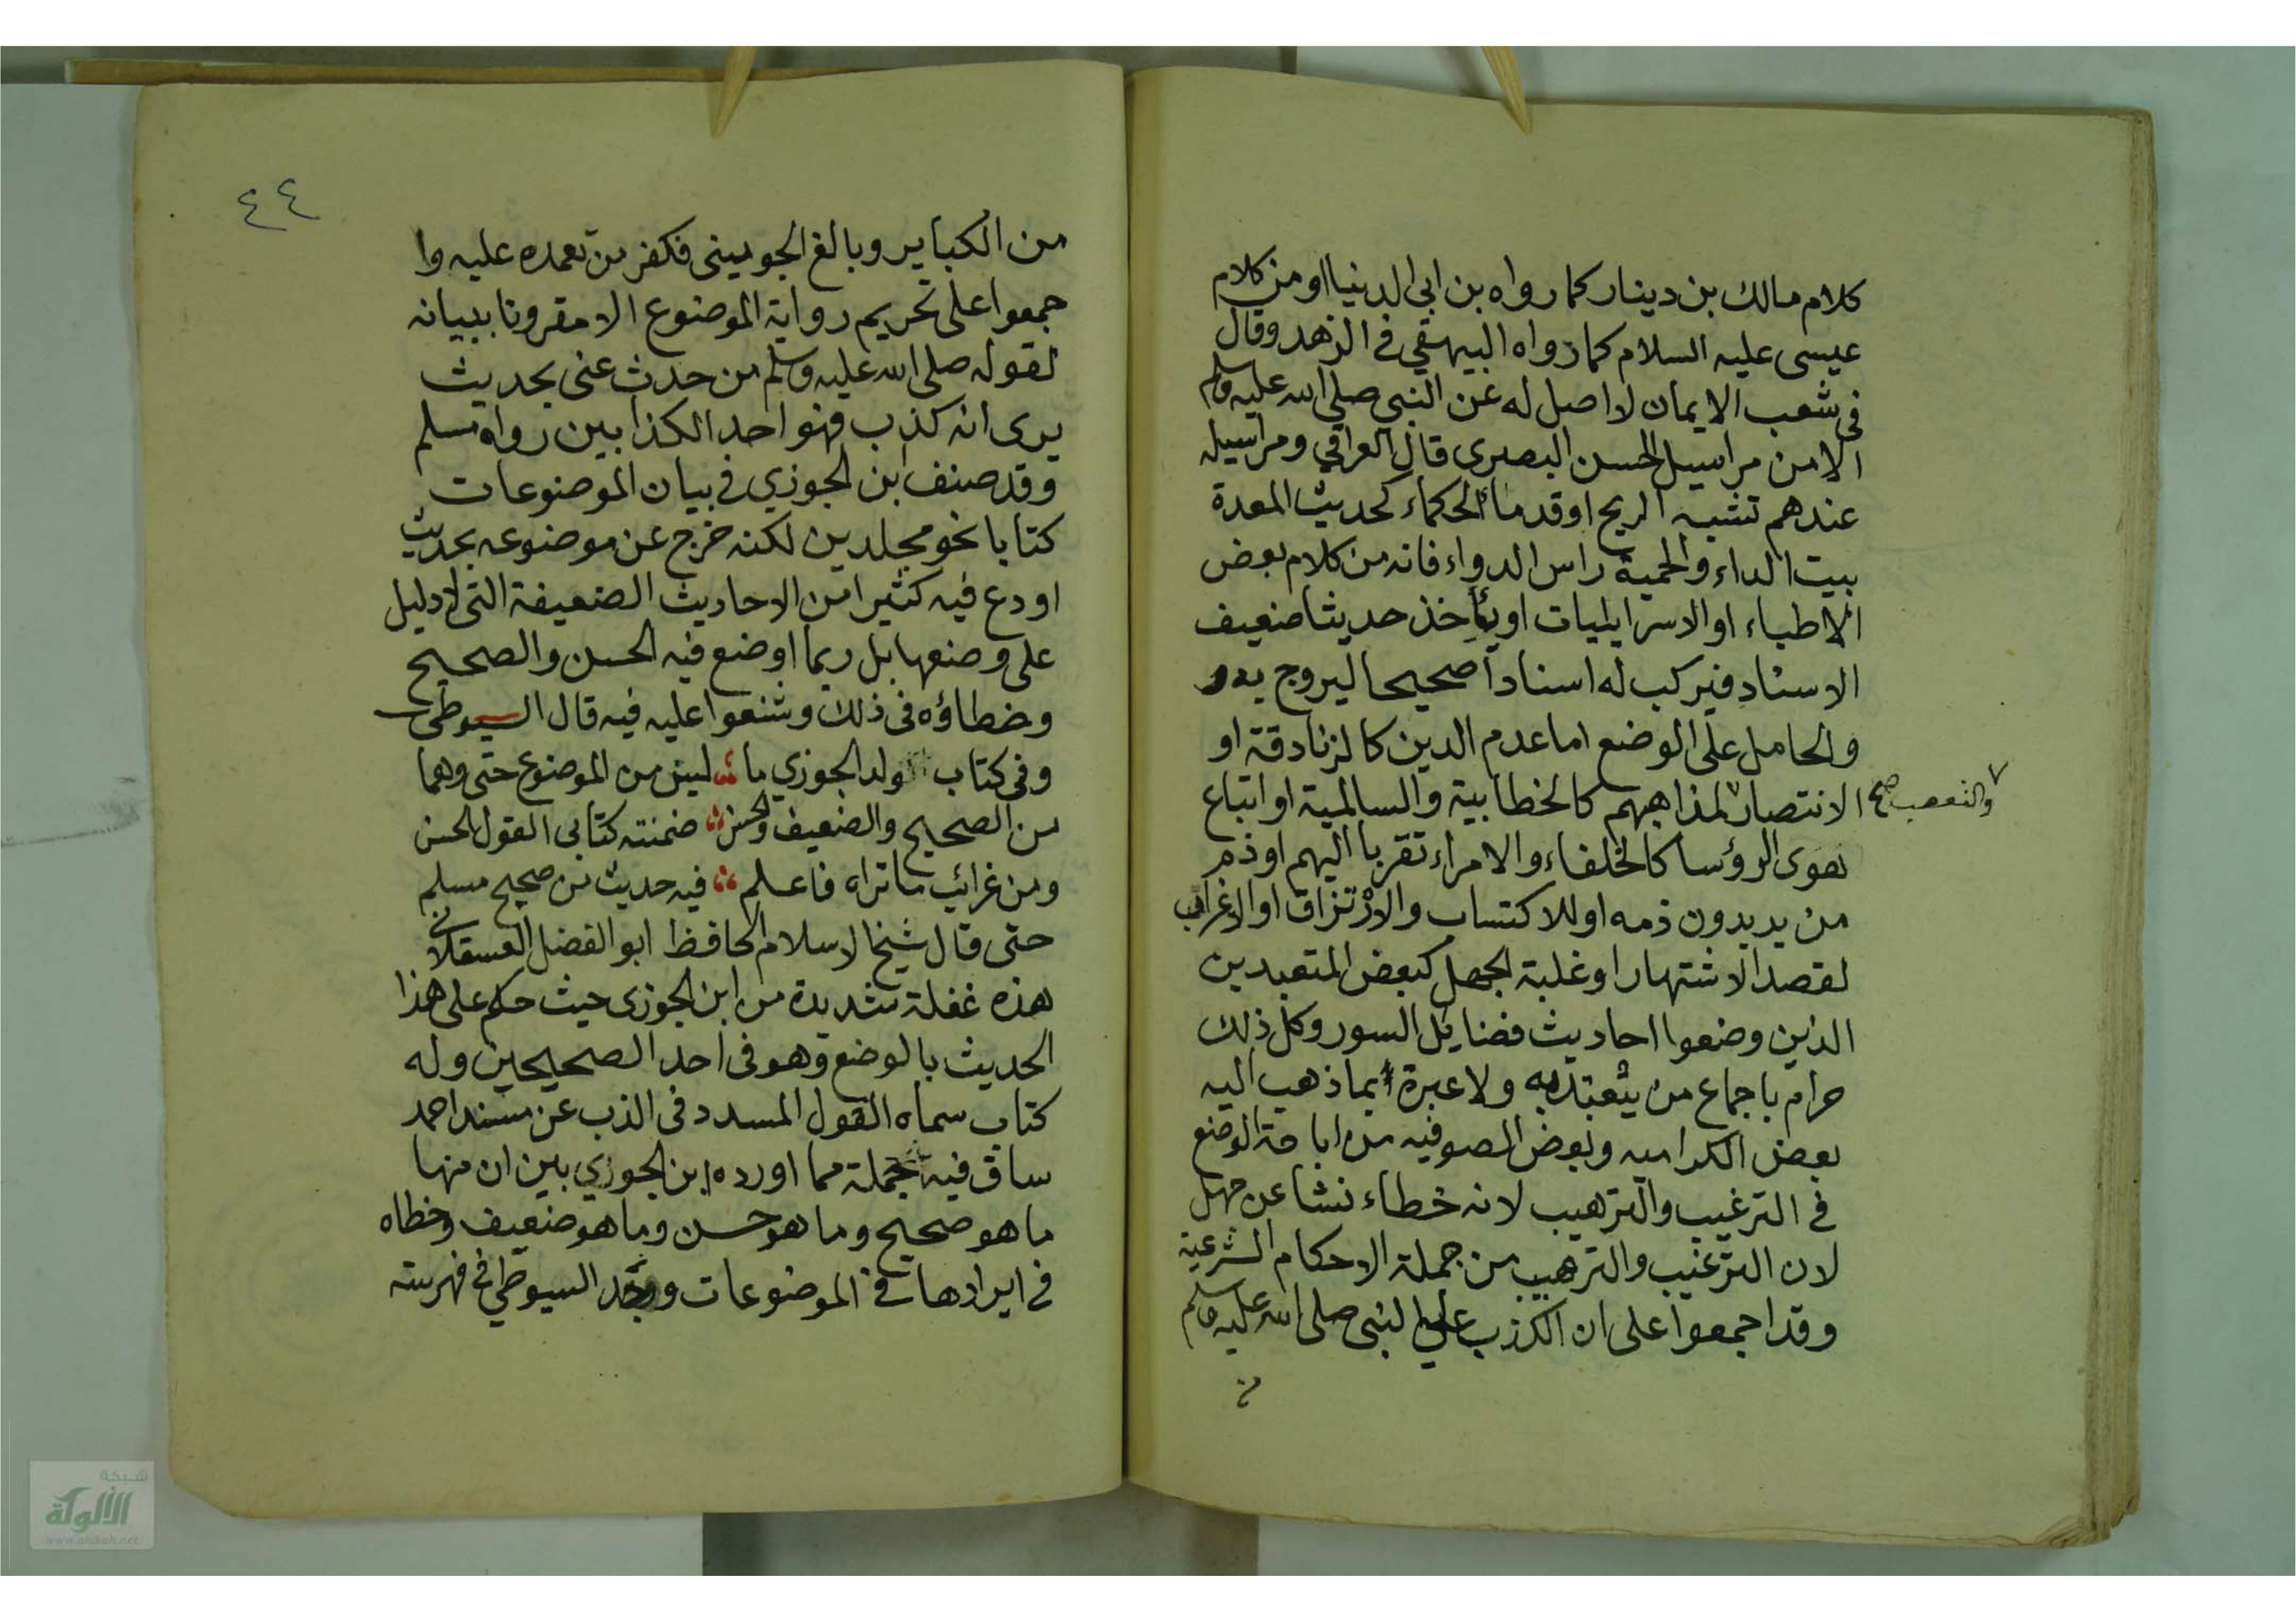 كلام مالك بن دينار كما رواه بن ابى الدنيا او من كلام
عيسى عليه السلام كما رواه البيهقي في الزهد وقال
فى شعب الايمان لا اصل له عن النبي صلى الله عليه وسلم
الا من مراسيل الحسن البصرى قال العراقي ومراسيله
عندهم تشبه الريح او قدماء الحكماء كحديث المعدة
بيت الداء والحمية راس الدواء فانه من كلام بعض
الاطباء او الاسرايليات او يأخذ حديثا ضعيف
الاسناد فيركب له اسنادا صحيحا ليروج به
والحامل على الوضع اما عدم الدين كالزنادقة او
الانتصار لمذاهبهم كالخطابية والسالمية او اتباع
والتعصب صح
هوى الرؤسا كالخلفاء والامراء تقربا اليهم او ذم
من يريدون ذمه او للاكتساب والارتزاق او الاغراب
لقصد الاشتهار او غلبة الجهل كبعض المتعبدين
الذين وضعوا احاديث فضايل السور وكل ذلك
حرام باجماع من يعتد به ولا عبرة بما ذهب اليه
بعض الكراميه وبعض المصوفيه من اباحة الوضع
في الترغيب والترهيب لانه خطاء نشا عن جهل
لان الترغيب والترهيب من جملة الاحكام الشرعية
وقد اجمعوا على ان الكذب على النبى صلى الله عليه وسلم
من
٤٤
من الكباير وبالغ الجوينى فكفر من تعمده عليه وا
جمعوا على تحريم رواية الموضوع الا مقرونا ببيانه
لقوله صلى الله عليه وسلم من حدث عنى بحديث
يرى انه كذب فهو احد الكذابين رواه مسلم
وقد صنف ابن الجوزي في بيان الموضوعات
كتابا نحو مجلدين لكنه خرج عن موضوعه بحديث
اودع فيه كثيرا من الاحاديث الضعيفة التى لا دليل
على وضعها بل ربما اوضع فيه الحسن والصحيح
وخطاؤه فى ذلك وشنعوا عليه فيه قال السيوطى
وفى كتاب ولد الجوزي ما ليس من الموضوع حتى وهما
من الصحيح والضعيف والحسن ضمنته كتابى القول الحسن
ومن غرائب ما تراه فاعلم فيه حديث من صحيح مسلم
حتى قال شيخ الاسلام الحافظ ابو الفضل العسقلانى
هذه غفلة شديدة من ابن الجوزى حيث حكم على هذا
الحديث بالوضع وهو فى احد الصحيحين وله
كتاب سماه القول المسدد فى الذب عن مسند احمد
ساق فيه جملة مما اورده ابن الجوزي بين ان منها
ما هو صحيح وما هو حسن وما هو ضعيف وخطاه
في ايرادها في الموضوعات السيوطي في فهرسته
شبكة
الألوكة
www.alukah.net